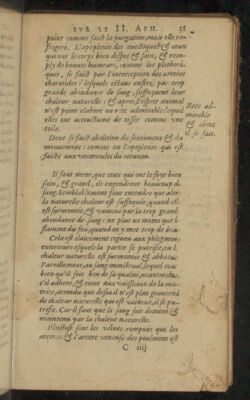 SVR LE II. APH.
point comme faict la purgation, mais elle re-
frigere. L'apoplexie des euectiques & ceux
qui ont le corps bien dispos & sain, & rem-
ply de bonnes humeurs, comme les plethori-
ques, se faict par l'interception des arteres
charotides: lesquels estans enflez par trop
grande abondance de sang, suffoquent leur
chaleur naturelle: & apres, l'esprit animal
n'est point elaboré en ceste admirable, que
elles ont accoustumé de tisser comme vne
toile.
Rete ad-
mirable
& cõme
il se fait.
Dont se faict abolition du sentiment & du
mouuement: comme en l'apoplexie qui est
faicte aux ventricules du cerueau.
Il faut noter, que ceux qui ont le foye bien
sain, & grand, ils engendrent beaucoup de
sang. Semblablement faut entendre que alors
la naturelle chaleur est suffoquée, quand elle
est surmontée, & vaincue par la trop grand
abondance de sang: ne plus ne moins que la
flamme du feu, quand on y met trop de bois.
Cela est clairement cogneu aux phlegmons
exterieurs esquels la partie se putrefie, quand
chaleur naturelle est surmontée & abbatue.
Pareillement, au sang menstrual, lequel com-
bien qu'il soit bon de sa qualité, neantmoins,
s'il adhere, & tient aux vaisseaux de la ma-
trice, attendu que desia il n'est plus gouuerné
de chaleur naturelle qui est vaincue, il se pu-
trefie. Car il faut que le sang soit dominé &
maintenu par la chaleur naturelle.
Plustost sont les veines rompues que les
arteres: & l'artere veneuse des poulmons est
C iiij